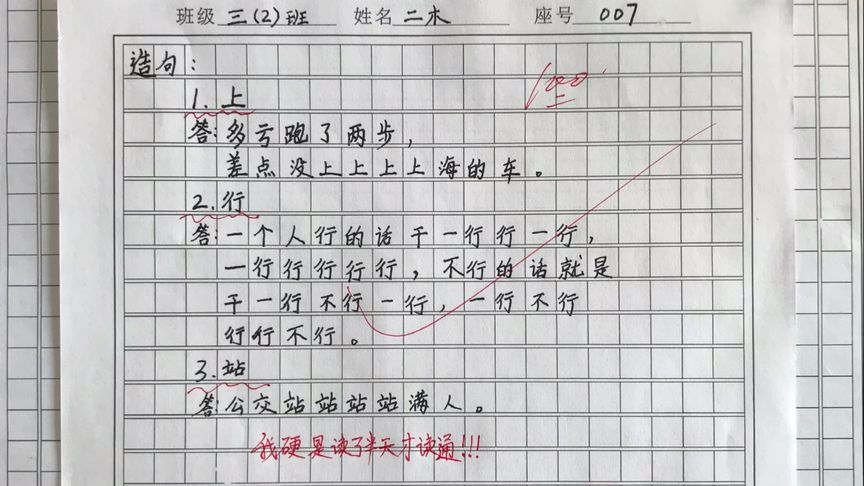 班级 三(2)班 姓名 二木 座号 007
造句:
100
1.上
答:多亏跑了两步,
差点没上上上上海的车。
2.行
答:一个人行的话干一行行一行,
一行行行行行,不行的话就是
干一行不行一行,一行不行
行行不行。
3.站
答:公交站站站站满人。
我硬是读了半天才读通!!!